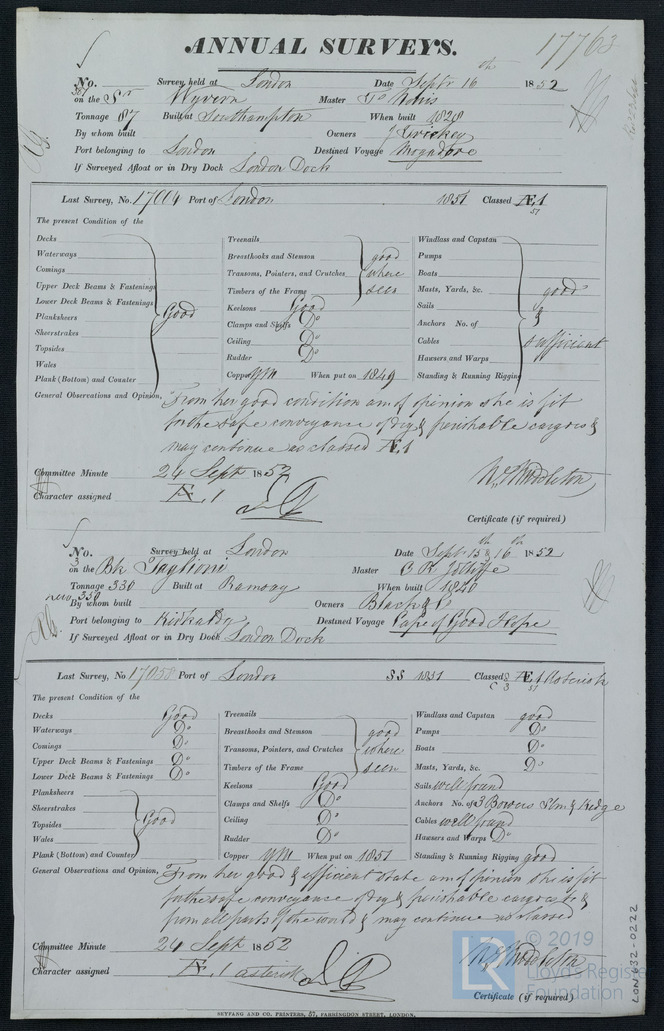 17763
ANNUAL SURVEYS.
No. Survey held at London Date Septr 16th 1852
on the Sr Wyvern Master
Tonnage 87 Built at Southampton When built 1828
By whom built Owners
Port belonging to London Destined Voyage Mogadore
If Surveyed Afloat or in Dry Dock London Dock
Last Survey, No. 17004 Port of London 1851 Classed Æ1
51
The present Condition of the
Decks
Waterways
Comings
Upper Deck Beams & Fastenings
Lower Deck Beams & Fastenings
Planksheers Good
Sheerstrakes
Topsides
Wales
Plank (Bottom) and Counter
Treenails
Breasthooks and Stemson good
Transoms, Pointers, and Crutches where
Timbers of the Frame seen
Keelsons Good
Clamps and Shelfs Do
Ceiling Do
Rudder Do
Copper YM When put on 1849
Windlass and Capstan
Pumps
Boats
Masts, Yards, &c. good
Sails &
Anchors No. of
Cables sufficient
Hawsers and Warps
Standing & Running Rigging
General Observations and Opinion, From her good condition am of opinion she is fit
for the safe conveyance of dry & perishable cargoes &
may continue as classed Æ1
Committee Minute 24 Sept 1852
Character assigned Æ 1
Wm Middleton
Certificate (if required)
No. Survey held at London Date Sept 15th & 16th 1852
on the Bk Taglioni Master
Tonnage 330 Built at Ramsay When built 1840
new 350
By whom built Owners Black & Co
Port belonging to Kirkaldy Destined Voyage Cape of Good Hope
If Surveyed Afloat or in Dry Dock London Dock
Last Survey, No 17058 Port of London SS 1851 Classed Æ1 Asterisk
51
The present Condition of the
Decks Good
Waterways Do
Comings Do
Upper Deck Beams & Fastenings Do
Lower Deck Beams & Fastenings Do
Planksheers
Sheerstrakes
Topsides Good
Wales
Plank (Bottom) and Counter
Treenails
Breasthooks and Stemson good
Transoms, Pointers, and Crutches where
Timbers of the Frame seen
Keelsons Good
Clamps and Shelfs Do
Ceiling Do
Rudder Do
Copper YM When put on 1851
Windlass and Capstan good
Pumps Do
Boats Do
Masts, Yards, &c. Do
Sails well found
Anchors No. of 3 Bowers Sm & Kedge
Cables well found
Hawsers and Warps Do
Standing & Running Rigging good
General Observations and Opinion, From her good & efficient state am of opinion she is fit
for the safe conveyance of dry & perishable cargoes to &
from all parts of the world & may continue as classed
Committee Minute 24 Sept 1852
Character assigned Æ 1 asterisk
Wm Middleton
Certificate (if required)
SEYFANG AND CO. PRINTERS, 57, FARRINGDON STREET, LONDON.
LR
© 2019
Lloyd's Register
Foundation
LON632-0222